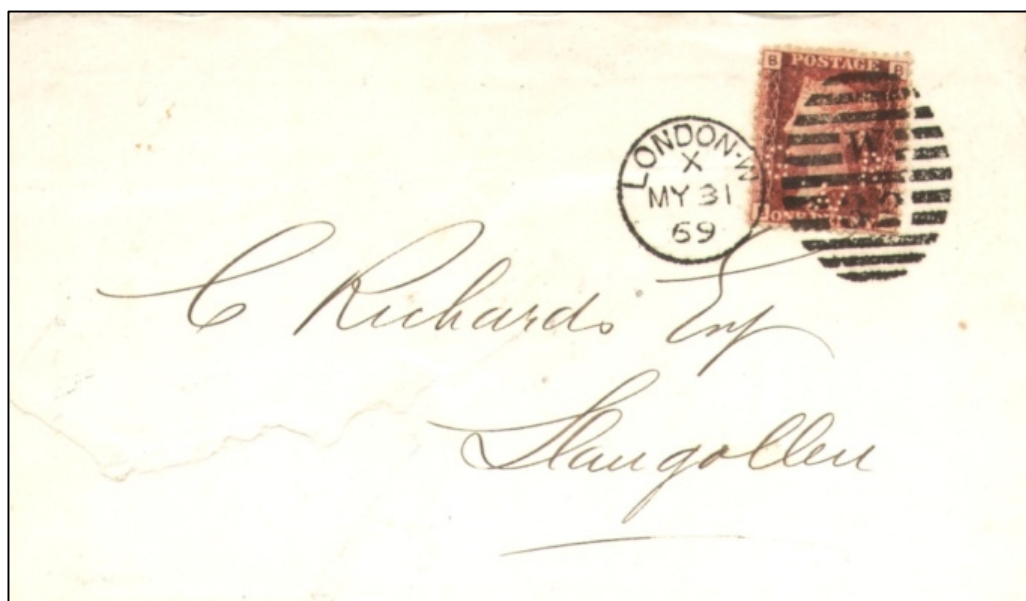 B POSTAGE B
LONDON·W
X
MY 31
69
W
C Richards Esq
Llangollen